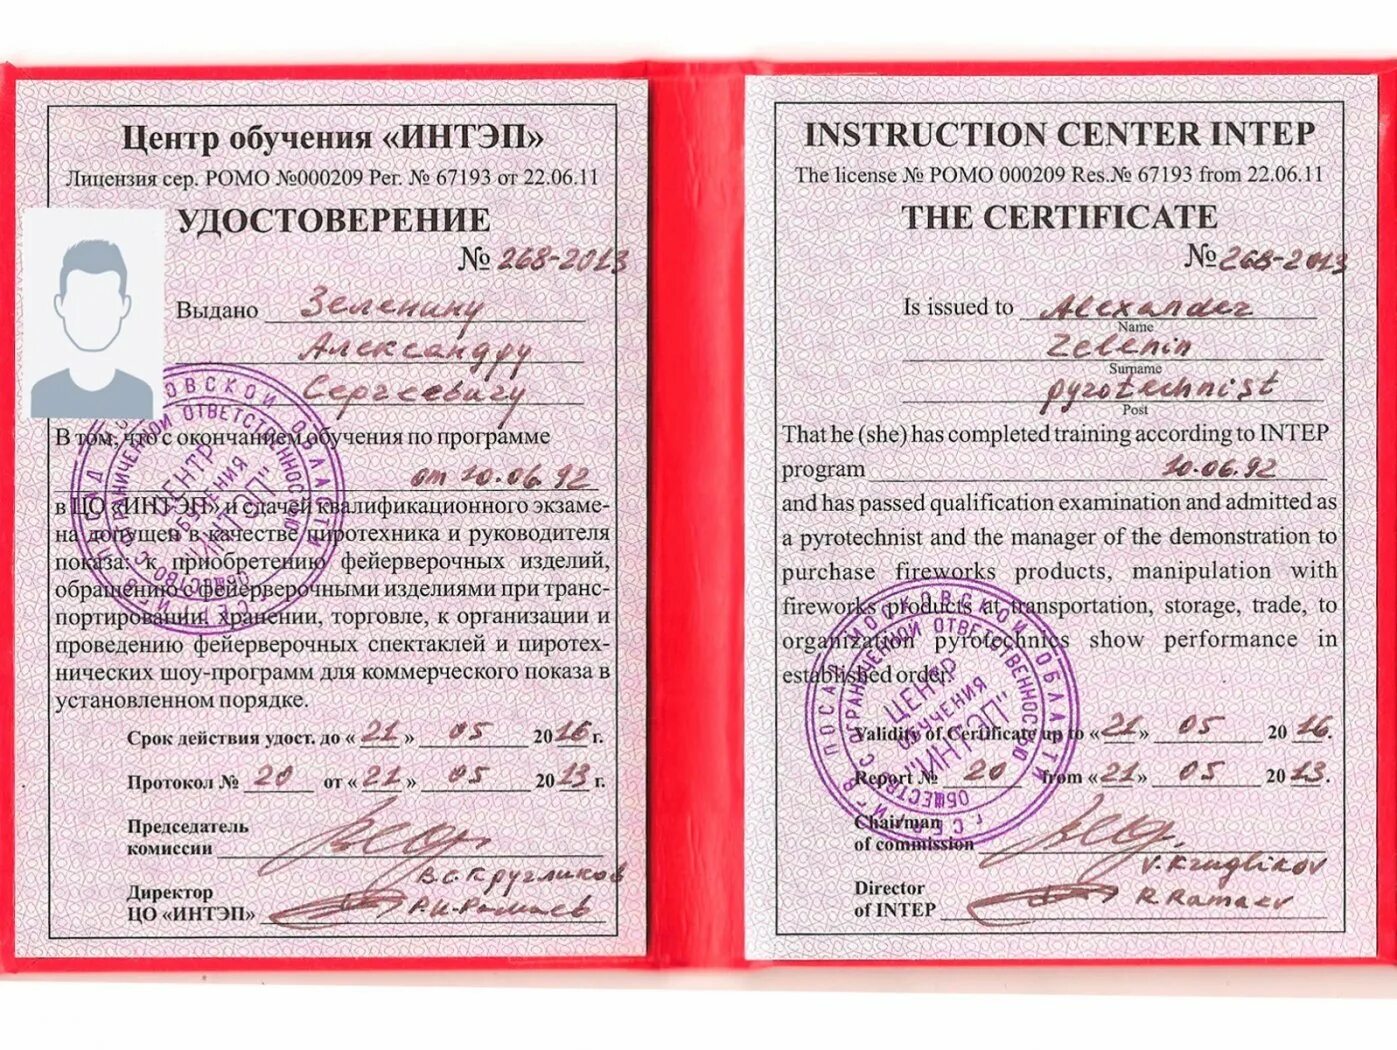 Центр обучения «ИНТЭП»
Лицензия сер. РОМО №000209 Рег. № 67193 от 22.06.11
УДОСТОВЕРЕНИЕ
№ 268-2013
Выдано Зеленину
Александру
Сергеевичу
В том, что с окончанием обучения по программе
от 10.06.92
в ЦО «ИНТЭП» и сдачей квалификационного экзаме-
на допущен в качестве пиротехника и руководителя
показа: к приобретению фейерверочных изделий,
обращению с фейерверочными изделиями при транс-
портировании, хранении, торговле, к организации и
проведению фейерверочных спектаклей и пиротех-
нических шоу-программ для коммерческого показа в
установленном порядке.
Срок действия удост. до « 21 » 05 2016 г.
Протокол № 20 от « 21 » 05 2013 г.
Председатель
комиссии
В.С. Кругликов
Директор
ЦО «ИНТЭП» Р.И. Рамаев
ЦЕНТР
ОБУЧЕНИЯ
"ИНТЭП"
INSTRUCTION CENTER INTEP
The license № РОМО 000209 Res.№ 67193 from 22.06.11
THE CERTIFICATE
№ 268-2013
Is issued to Alexander
Name
Zelenin
Surname
pyrotechnist
Post
That he (she) has completed training according to INTEP
program 10.06.92
and has passed qualification examination and admitted as
a pyrotechnist and the manager of the demonstration to
purchase fireworks products, manipulation with
fireworks products at transportation, storage, trade, to
organization pyrotechnics show performance in
established order.
Validity of Certificate up to «21» 05 2016.
Report № 20 from «21» 05 2013.
Chairman
of commission
V. Kruglikov
Director
of INTEP R. Ramaev
ЦЕНТР
ОБУЧЕНИЯ
"ИНТЭП"